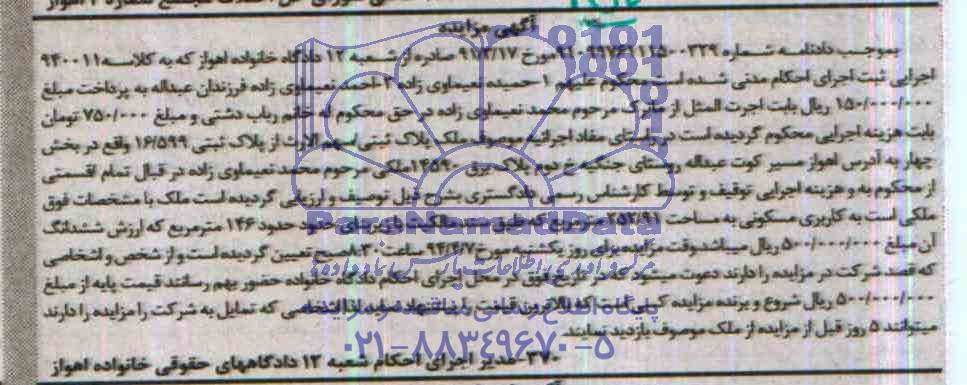 آگهی مزایده
بموجب دادنامه شماره ۹۱۰۹۹۷۶۱۱۱۵۰۰۳۲۹ مورخ ۹۱/۳/۱۷ صادره از شعبه ۱۲ دادگاه خانواده اهواز که به کلاسه ۹۴۰۰۱۱
اجرایی ثبت اجرای احکام مدنی شده است محکوم علیهم ۱-حمیده نعیماوی زاده ۲-احمد نعیماوی زاده فرزندان عبداله به پرداخت مبلغ
۱۵۰/۰۰۰/۰۰۰ ریال بابت اجرت المثل از ماترک مرحوم محمد نعیماوی زاده در حق محکوم له خانم رباب دشتی و مبلغ ۷۵۰/۰۰۰ تومان
بابت هزینه اجرایی محکوم گردیده است در راستای مفاد اجرائیه موصوف ملک پلاک ثبتی سهم الارث از پلاک ثبتی ۱۶/۵۹۹ واقع در بخش
چهار به آدرس اهواز مسیر کوت عبداله روستای جنگیه خ دوم پلاک برق ۱۴۵۹۰ ملکی مرحوم محمد نعیماوی زاده در قبال تمام اقسمتی
از محکوم به و هزینه اجرایی توقیف و توسط کارشناس رسمی دادگستری بشرح ذیل توصیف و ارزیابی گردیده است ملک با مشخصات فوق
ملکی است به کاربری مسکونی به مساحت ۲۵۲/۹۱ مترمربع که طبق سند مالکیت با زیربنای حدود ۱۴۶ مترمربع که ارزش ششدانگ
آن مبلغ ۵۰۰/۰۰۰/۰۰۰ ریال میباشد وقت مزایده برای روز یکشنبه مورخ ۹۴/۶/۷ ساعت ۸:۳۰ صبح تعیین گردیده است و از شخص و اشخاصی
که قصد شرکت در مزایده را دارند دعوت میشود که در تاریخ فوق در محل اجرای احکام دادگاه خانواده حضور بهم رسانند قیمت پایه از مبلغ
۵۰۰/۰۰۰/۰۰۰ ریال شروع و برنده مزایده کسی است که بالاترین قیمت را پیشنهاد نماید لذا اشخاصی که تمایل به شرکت را مزایده را دارند
میتوانند ۵ روز قبل از مزایده از ملک موصوف بازدید نمایند.
۳۷۰-مدیر اجرای احکام شعبه ۱۲ دادگاههای حقوقی خانواده اهواز
ParsNamadData
پایگاه اطلاع رسانی
۰۲۱-۸۸۳۴۹۶۷۰-۵